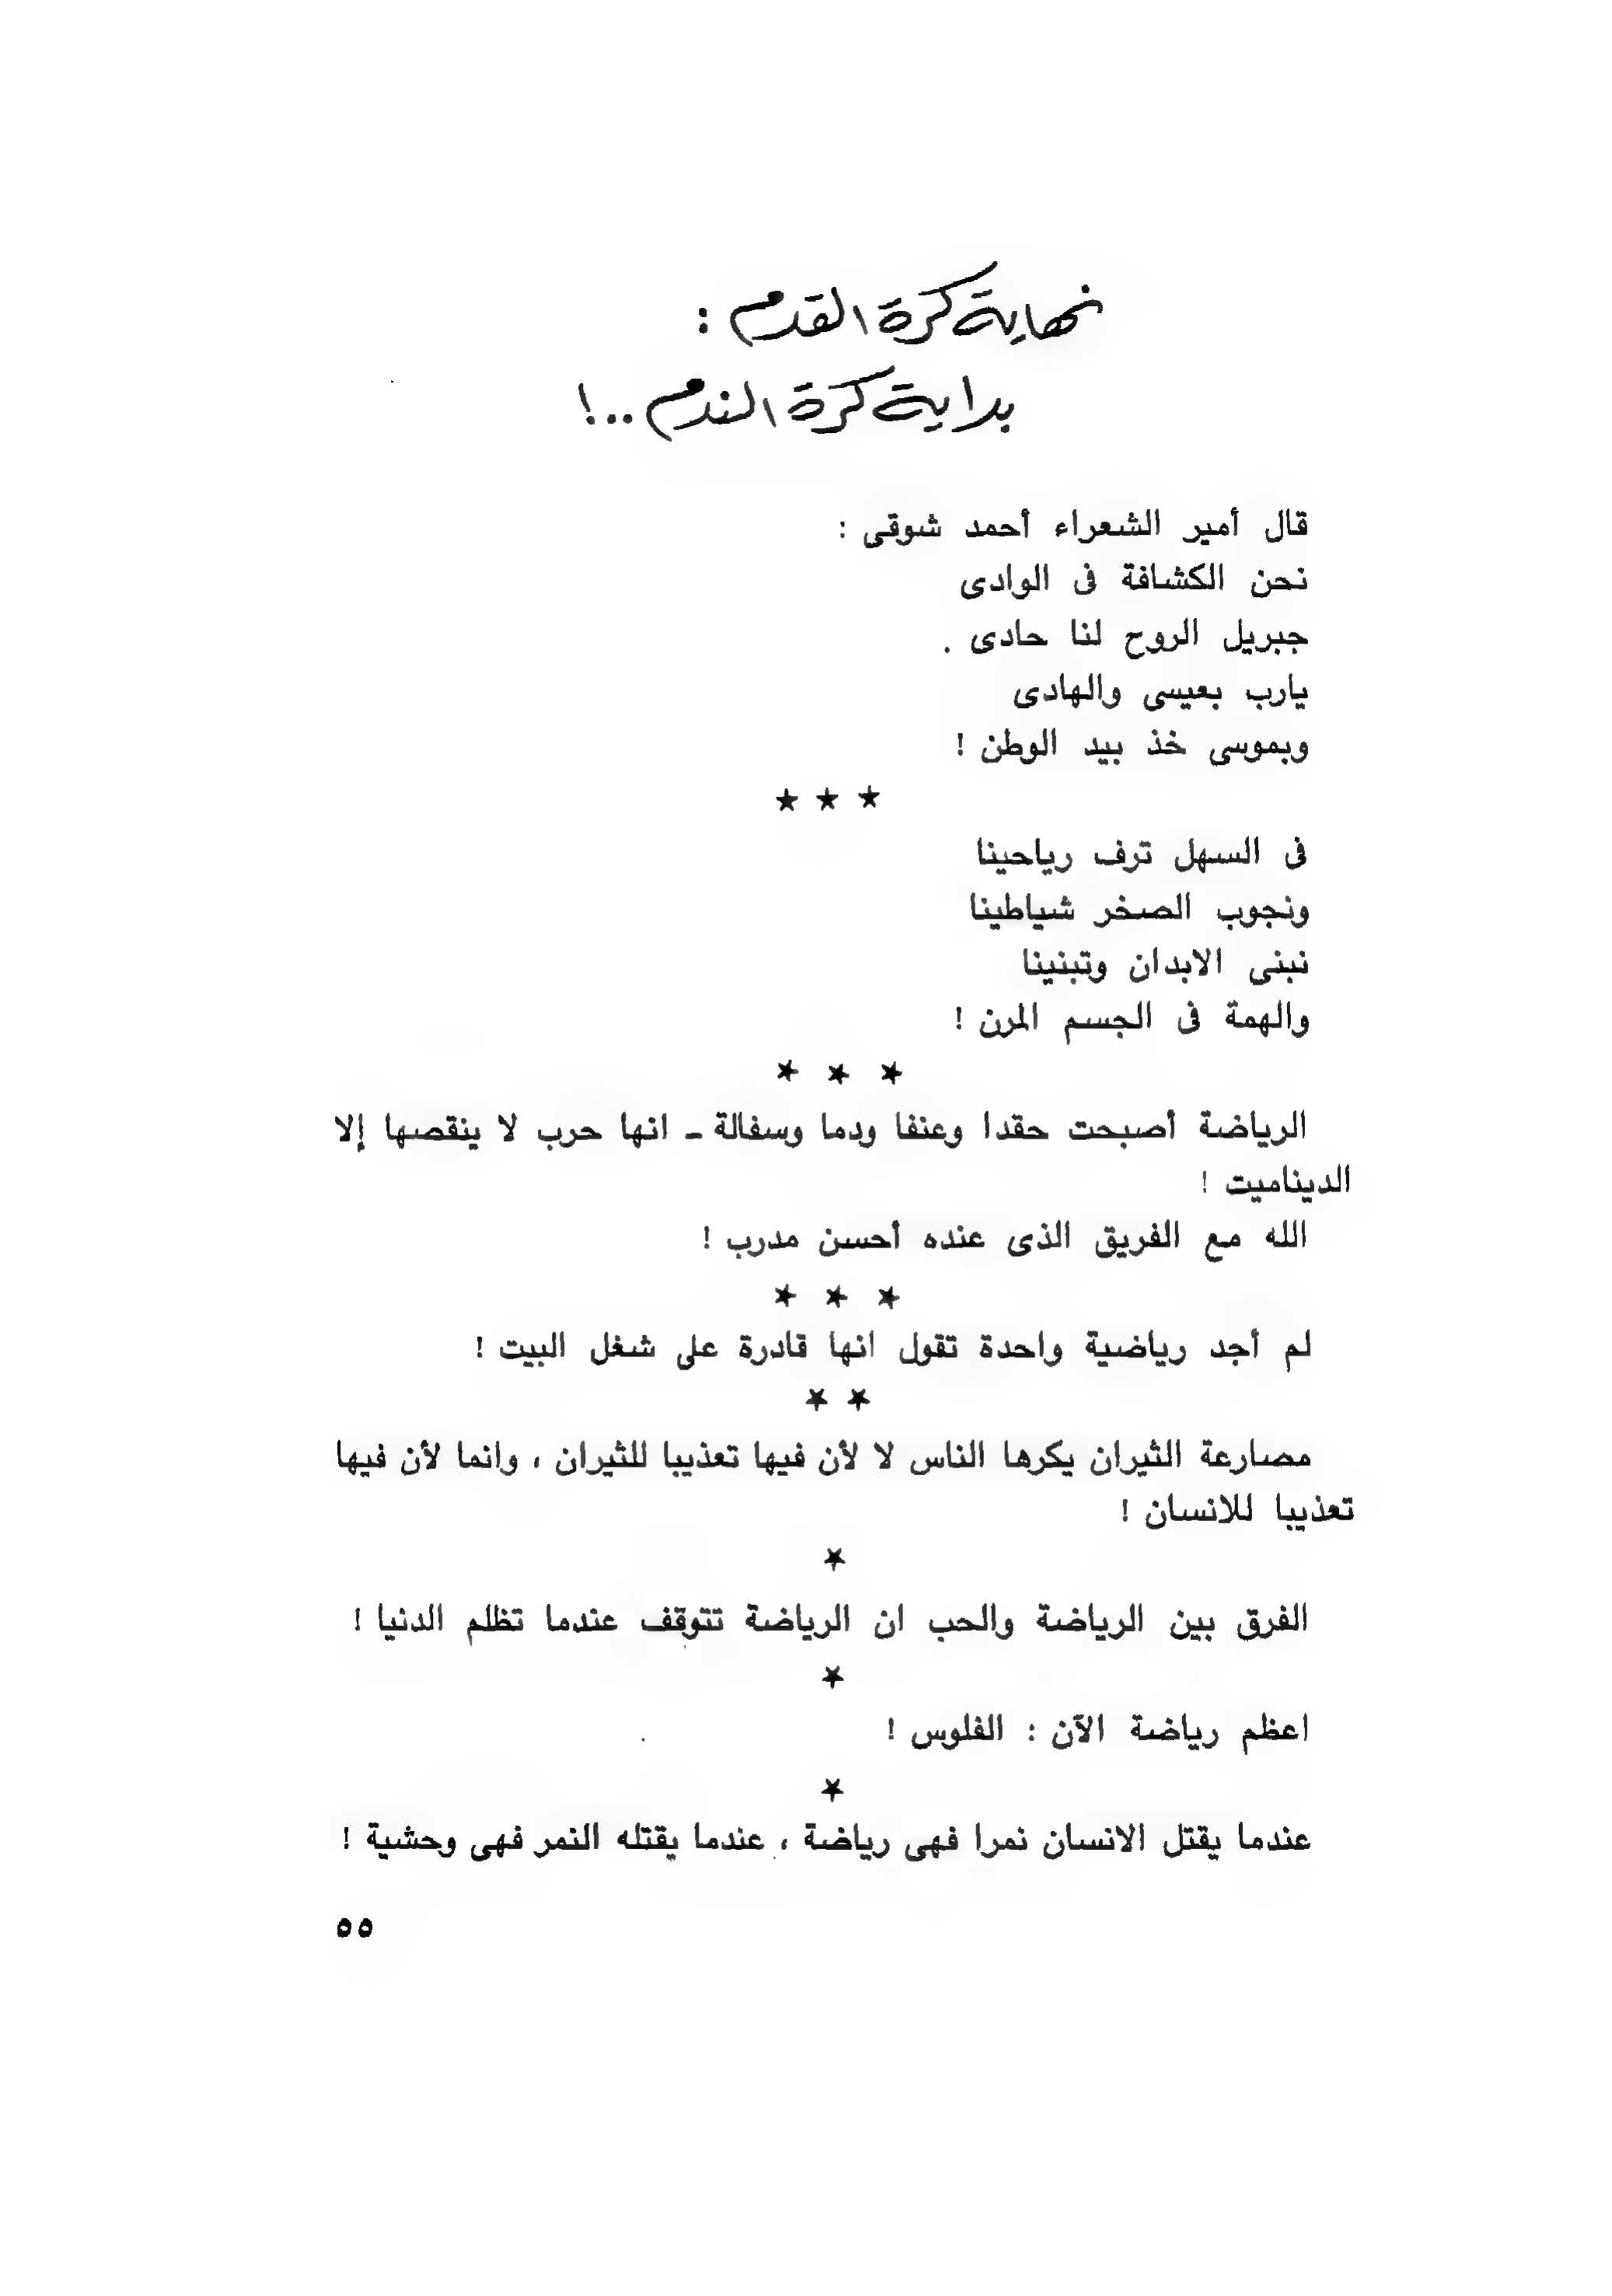 نهاية كرة القدم :
بداية كرة الندم ..!
قال أمير الشعراء أحمد شوقى :
نحن الكشافة فى الوادى
جبريل الروح لنا حادى .
يارب بعيسى والهادى
وبموسى خذ بيد الوطن !
★ ★ ★
فى السهل ترف رياحينا
ونجوب الصخر شياطينا
نبنى الابدان وتبنينا
والهمة فى الجسم المرن !
★ ★ ★
الرياضة أصبحت حقدا وعنفا ودما وسفالة ـ انها حرب لا ينقصها إلا
الديناميت !
الله مع الفريق الذى عنده أحسن مدرب !
★ ★ ★
لم أجد رياضية واحدة تقول انها قادرة على شغل البيت !
★ ★
مصارعة الثيران يكرها الناس لا لأن فيها تعذيبا للثيران ، وانما لأن فيها
تعذيبا للانسان !
★
الفرق بين الرياضة والحب ان الرياضة تتوقف عندما تظلم الدنيا !
★
اعظم رياضة الآن : الفلوس !
★
عندما يقتل الانسان نمرا فهى رياضة ، عندما يقتله النمر فهى وحشية !
٥٥